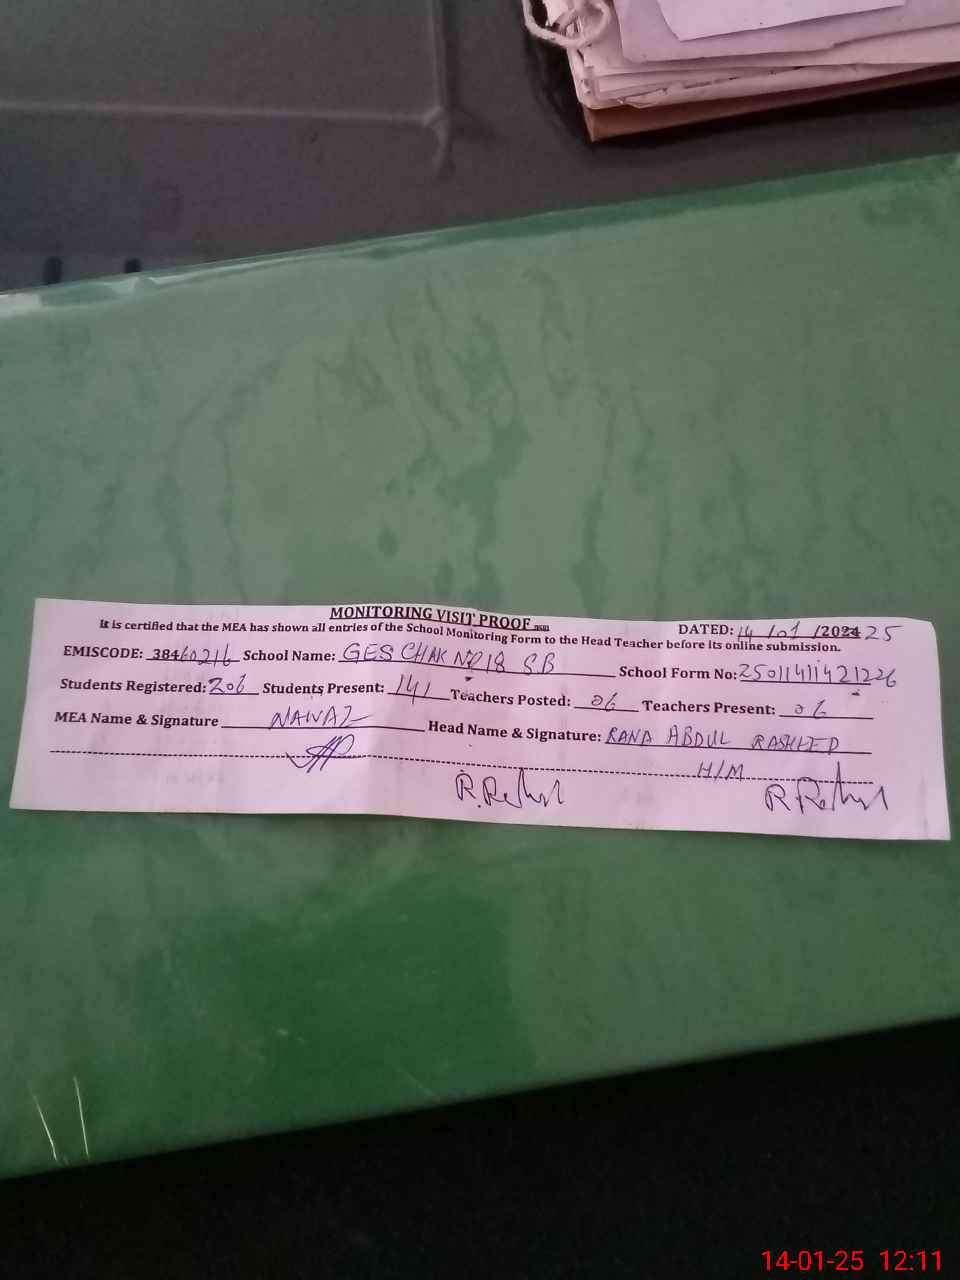 MONITORING VISIT PROOF
DATED: 14/01/2024 25
It is certified that the MEA has shown all entries of the School Monitoring Form to the Head Teacher before its online submission.
EMISCODE: 38460216 School Name: GES CHAK NO 18 SB School Form No: 25011411421226
Students Registered: 206 Students Present: 141 Teachers Posted: 06 Teachers Present: 06
MEA Name & Signature NAWAZ Head Name & Signature: RANA ABDUL RASHEED
H/M
14-01-25 12:11